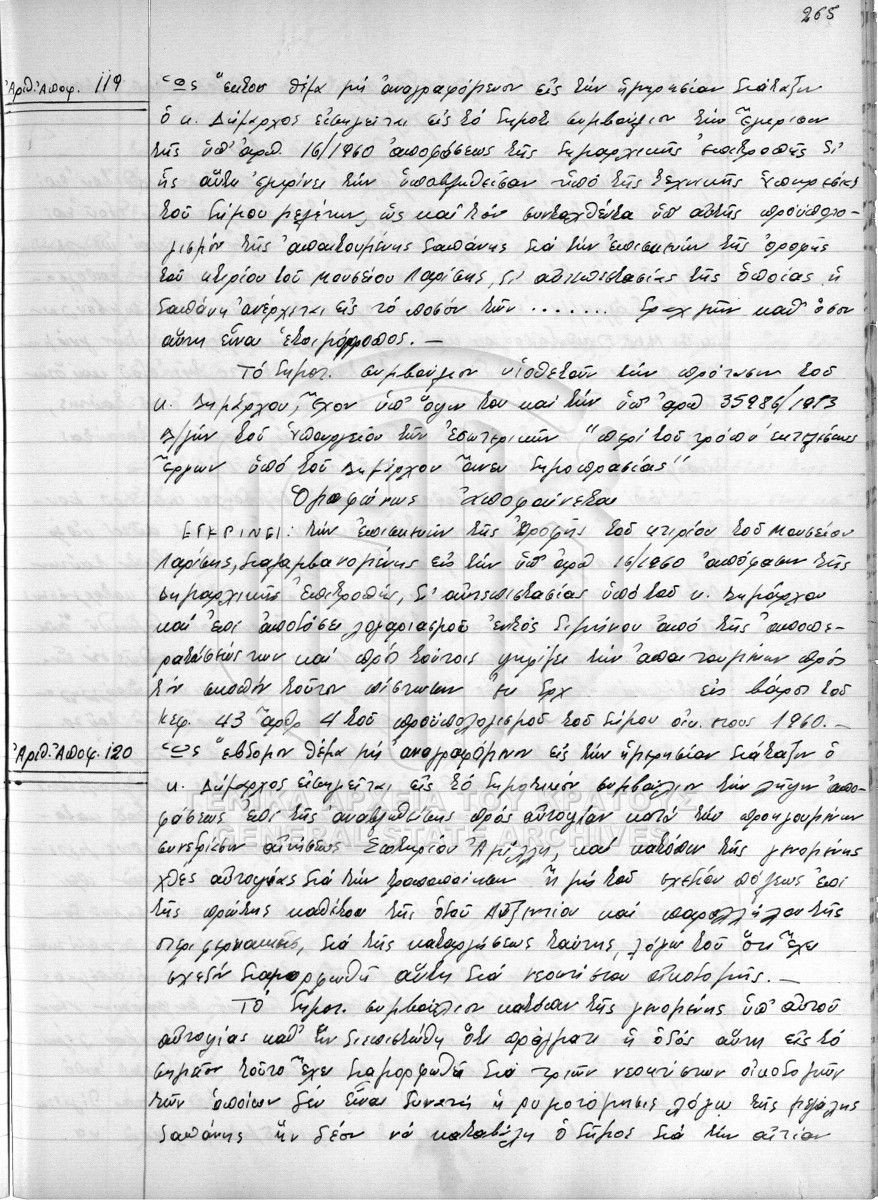 265
Ἀριθ. Ἀποφ. 119
ὡς "ἕκτον θέμα μή ἀναγραφόμενον εἰς τήν ἡμερησίαν διάταξιν
ὁ κ. Δήμαρχος εἰσηγεῖται εἰς τό δημοτ. συμβούλιον τήν ἔγκρισιν
τῆς ὑπ' ἀριθ. 16/1960 ἀποφάσεως τῆς Δημαρχικῆς Ἐπιτροπῆς δι'
ἧς αὕτη ἐγκρίνει τήν ὑποβληθεῖσαν ὑπό τῆς τεχνικῆς ὑπηρεσίας
τοῦ Δήμου μελέτην, ὡς καί τόν συνταχθέντα ὑπ' αὐτῆς προϋπολο-
γισμόν τῆς ἀπαιτουμένης δαπάνης διά τήν ἐπισκευήν τῆς ὀροφῆς
τοῦ κτιρίου τοῦ Μουσείου Λαρίσης, δι' αὐτεπιστασίας τῆς ὁποίας ἡ
δαπάνη ἀνέρχεται εἰς τό ποσόν τῶν ....... δραχμῶν καθ' ὅσον
αὕτη εἶναι ἑτοιμόρροπος. —
Τό δημοτ. συμβούλιον υἱοθετοῦν τήν πρότασιν τοῦ
κ. Δημάρχου, ἔχον ὑπ' ὄψιν του καί τήν ὑπ' ἀριθ 35986/1953
Δ/γήν τοῦ Ὑπουργείου τῶν Ἐσωτερικῶν "περί τοῦ τρόπου ἐκτελέσεως
ἔργων ὑπό τοῦ Δημάρχου ἄνευ δημοπρασίας"
Ὁμοφώνως ἀποφαίνεται
ΕΓΚΡΙΝΕΙ: τήν ἐπισκευήν τῆς ὀροφῆς τοῦ κτιρίου τοῦ Μουσείου
Λαρίσης, διαλαμβανομένης εἰς τήν ὑπ' ἀριθ 16/1960 ἀπόφασιν τῆς
Δημαρχικῆς Ἐπιτροπῆς, δι' αὐτεπιστασίας ὑπό τοῦ κ. Δημάρχου
καί ἐπί ἀποδόσει λογαριασμοῦ ἐντός διμήνου ἀπό τῆς ἀποπε-
ρατώσεώς των καί πρός τούτοις ψηφίζει τήν ἀπαιτουμένην πρός
τόν σκοπόν τοῦτον πίστωσιν ἐκ δρχ. εἰς βάρος τοῦ
Κεφ. 43 ἄρθρ 4 τοῦ προϋπολογισμοῦ τοῦ Δήμου οἰκ. ἔτους 1960. —
Ἀριθ. Ἀποφ. 120
ὡς "ἕβδομον θέμα μή ἀναγραφόμενον εἰς τήν ἡμερησίαν διάταξιν ὁ
κ. Δήμαρχος εἰσηγεῖται εἰς τό δημοτικόν συμβούλιον τήν λῆψιν ἀπο-
φάσεως ἐπί τῆς ἀναβληθείσης πρός αὐτοψίαν κατά τήν προηγουμένην
συνεδρίασιν αἰτήσεως Σωτηρίου, καί κατόπιν τῆς γενομένης
χθές αὐτοψίας διά τήν τροποποίησιν ἤ μή τοῦ σχεδίου πόλεως ἐπί
τῆς πρώτης καθέτου τῆς ὁδοῦ καί παραλλήλου τῆς
διά τῆς καταργήσεως ταύτης, λόγῳ τοῦ ὅτι ἔχει
σχεδόν διαμορφωθῆ αὕτη διά νεοκτίστου οἰκοδομῆς. —
Τό δημοτ. συμβούλιον κατόπιν τῆς γενομένης ὑπ' αὐτοῦ
αὐτοψίας καθ' ἥν διεπιστώθη ὅτι πράγματι ἡ ὁδός αὕτη εἰς τό
σημεῖον τοῦτο ἔχει διαμορφωθῆ διά τριῶν νεοκτίστων οἰκοδομῶν
τῶν ὁποίων δέν εἶναι δυνατή ἡ ρυμοτόμησις λόγῳ τῆς μεγάλης
δαπάνης ἥν δέον νά καταβάλῃ ὁ Δῆμος διά τήν αἰτίαν
ΓΕΝΙΚΑ ΑΡΧΕΙΑ ΤΟΥ ΚΡΑΤΟΥΣ
GENERAL STATE ARCHIVES